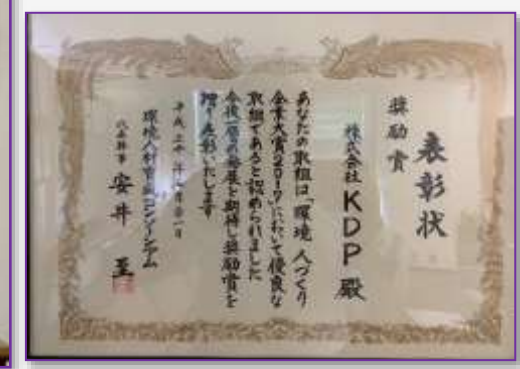 表彰状
奨励賞
株式会社 KDP 殿
あなたの取組は「環境 人づくり
企業大賞2017」において優良な
取組であると認められました
今後一層の発展を期待し奨励賞を
贈り表彰いたします
平成三十年
環境人材育成コンソーシアム
代表幹事 安井 至